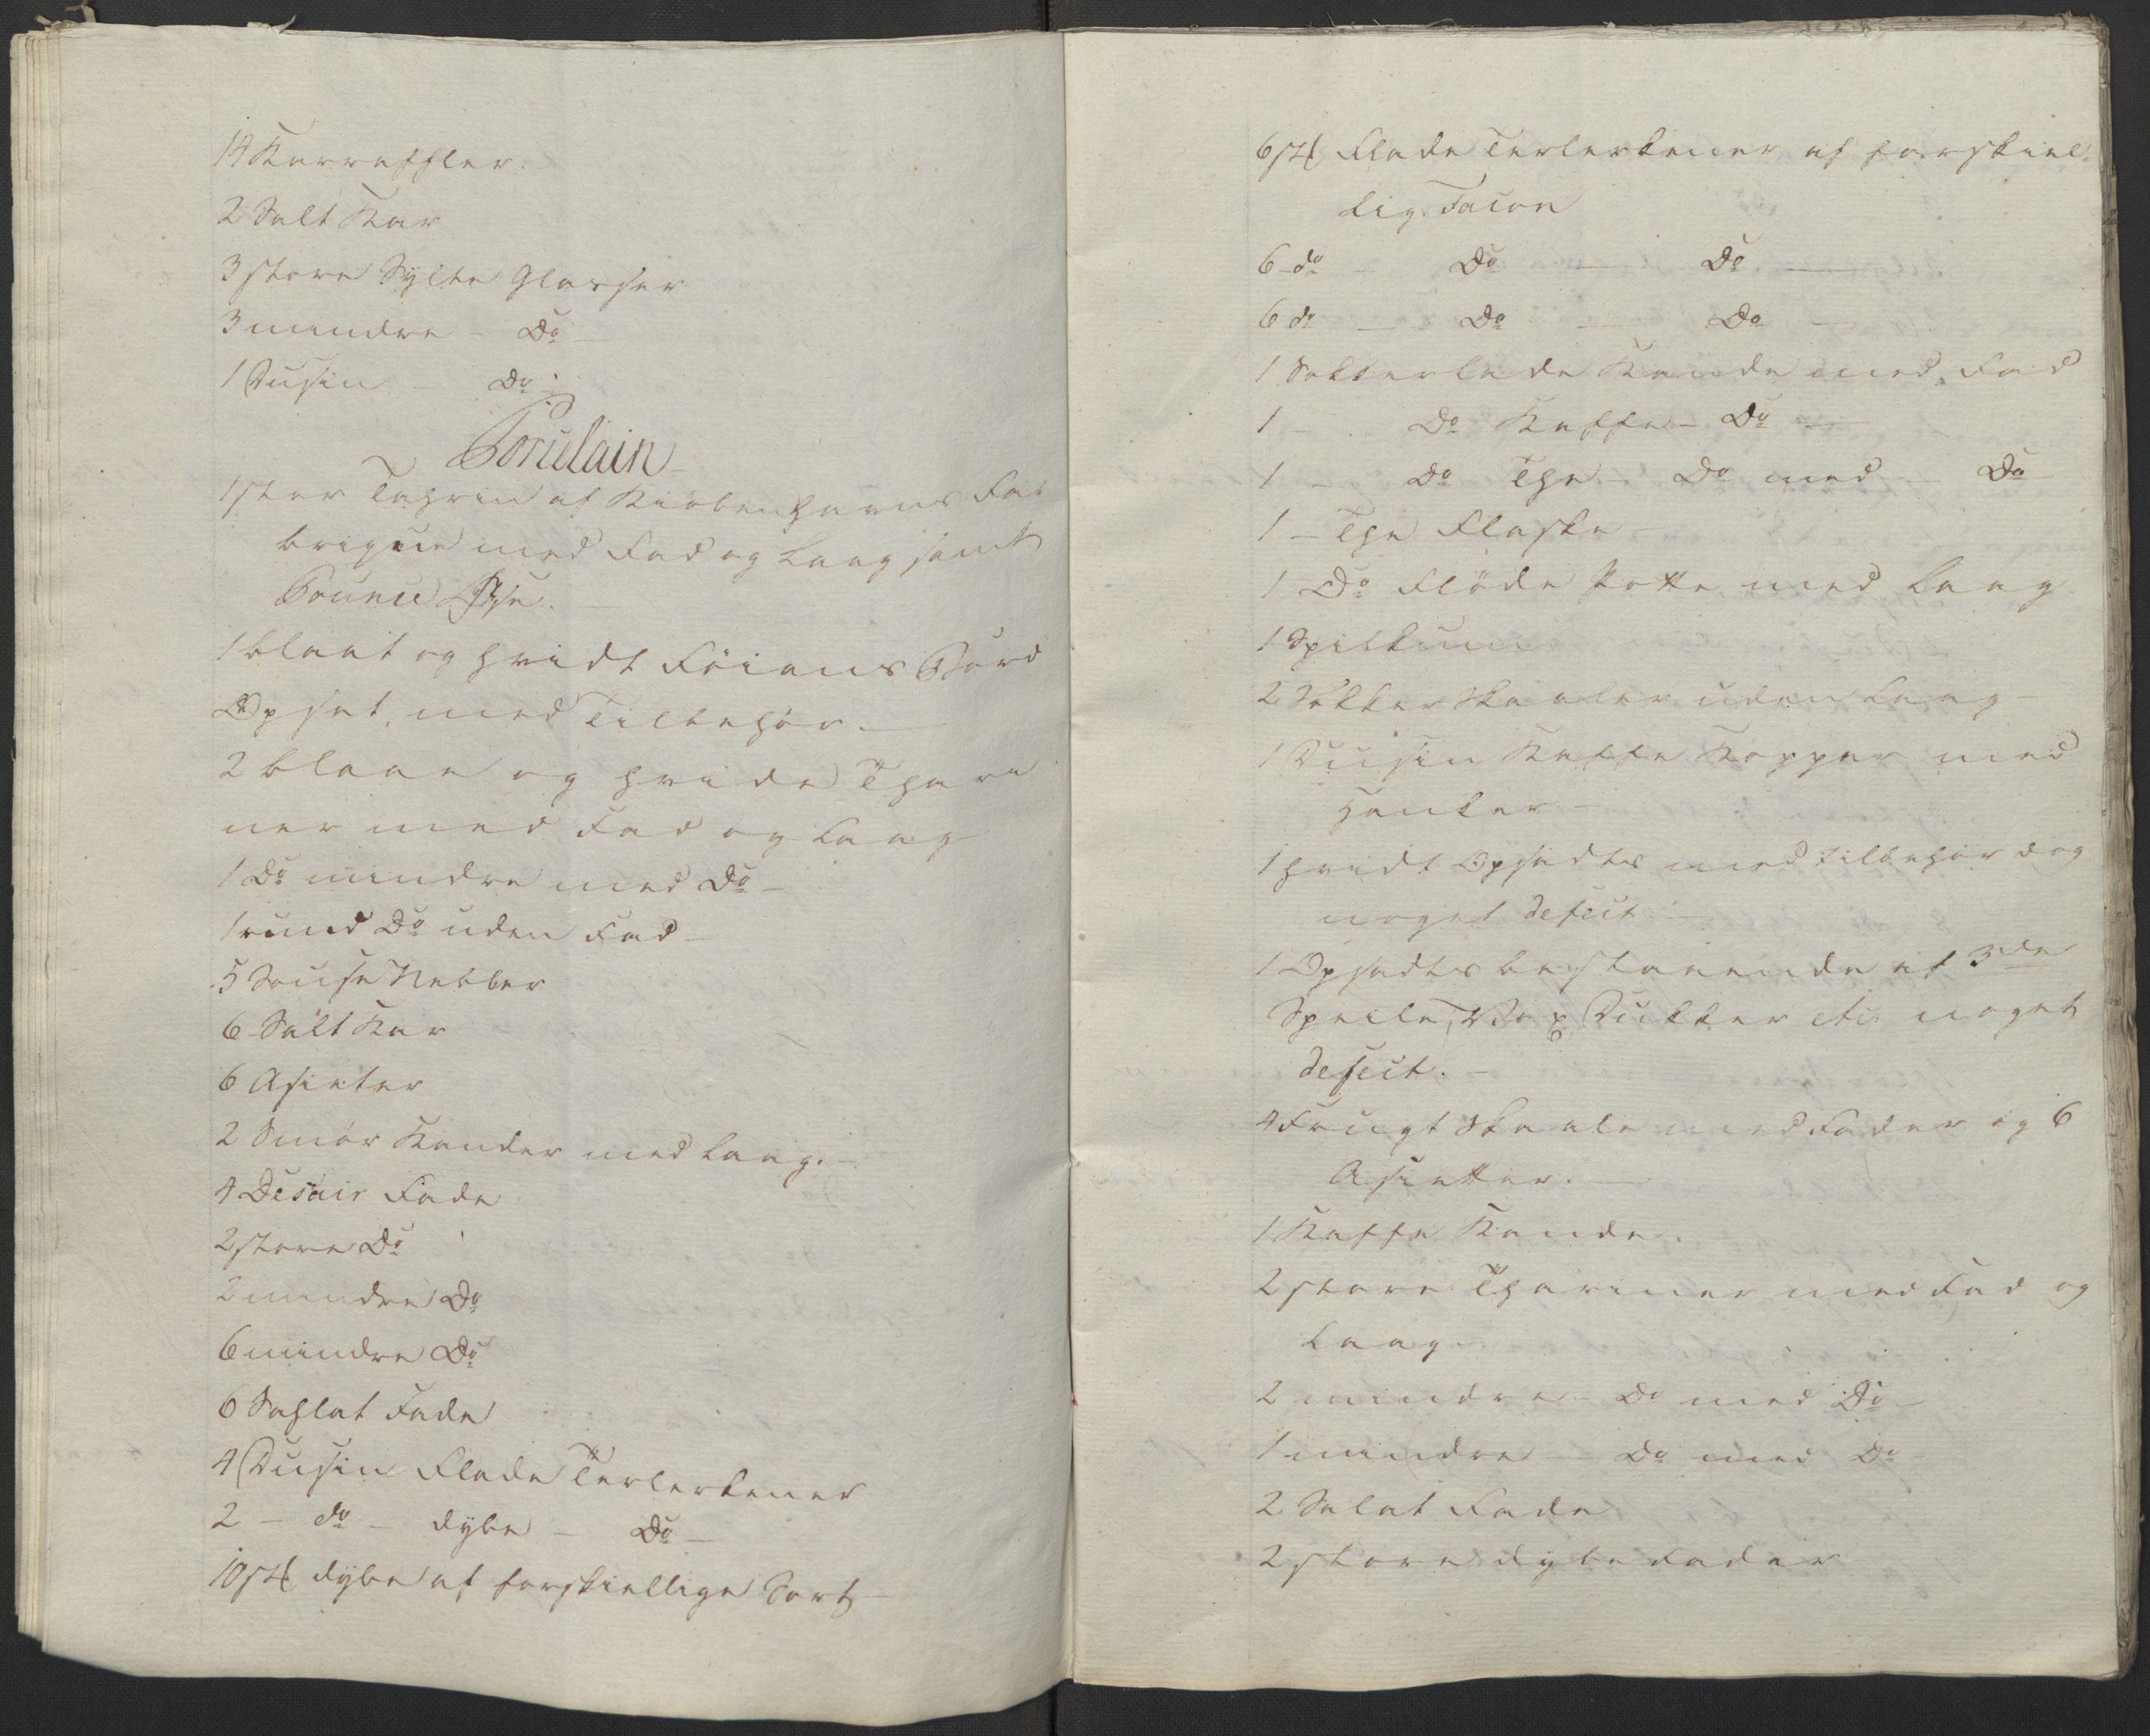 14 Karrafler.
2 Salt Kar
3 store Sylte Glasser
3 mindre - Do
1 Dusin - Do
Porcelain
1 stor Tehrin af Kiöbenhavns Fa-
brique med Fad og Laag samt
1 blaat og hvidt Föians Bord
Opsat, med Tilbehör.
2 blaae og hvide Thari
ner med Fad og Laag
1 Do mindre med Do -
1 rund Do uden Fad -
5 Sause Nebber
6 Salt Kar
6 Asieter
2 Smör Kander med Laag. -
4 Desair Fade
2 store Do
2 mindre Do
6 mindre Do
6 Sahlat Fade
4 Dusin Flade Terlerkener
2 - do - dybe - Do -
10 st dybe af forskiellige Sort -
6 st Flade Terlerkener af forskiel-
lig Facon
6 - do - Do - Do -
6 do - Do - Do -
1 Sokkerlade Kande med Fad
1 - Do Kaffe - Do -
1 - Do The - Do med - Do
1 - The Flaske -
1 Do Flöde Potte med Laag
1 Spilkum
2 Sokker Skaaler uden Laag -
1 Dusin Kaffe Kopper med
Hanker -
1 hvidt Opsadts med tilbehör dog
noget defect -
1 Opsadts bestaaende af 3de
Speile, Vox Dukker etc. noget
defect. -
4 Frugt Skaale med Fader og 6
Asietter. -
1 Kaffe Kande.
2 store Thariner med Fad og
Laag -
2 mindre - Do med Do -
1 mindre - Do med Do -
2 Salat Fade
2 store dybe Fader